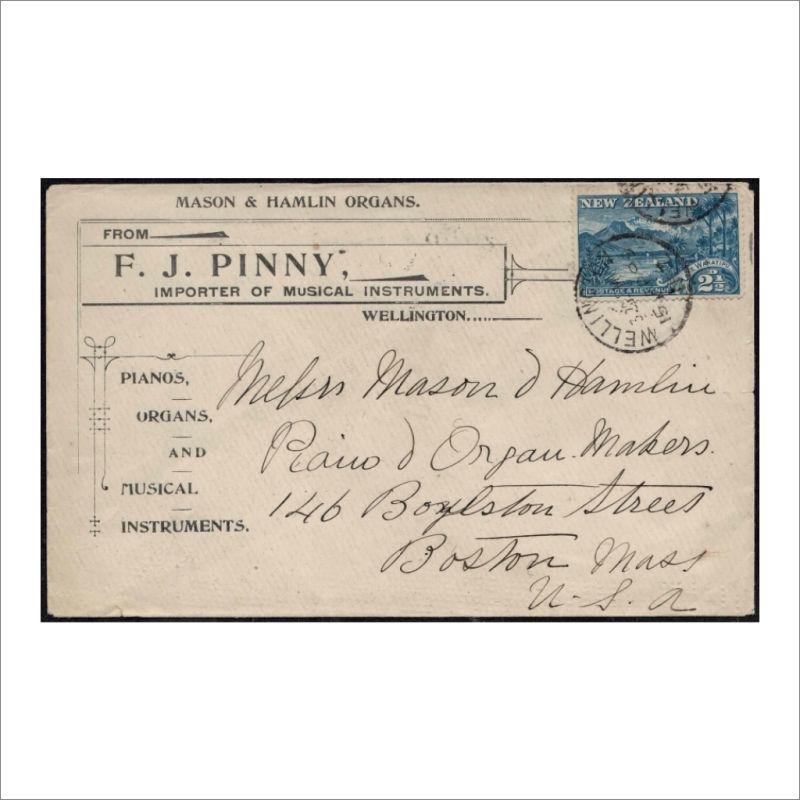 MASON & HAMLIN ORGANS.
FROM
F. J. PINNY,
IMPORTER OF MUSICAL INSTRUMENTS.
WELLINGTON.....
PIANOS,
ORGANS,
AND
MUSICAL
INSTRUMENTS.
NEW ZEALAND
POSTAGE & REVENUE
2½D
Messrs Mason & Hamlin
Piano & Organ Makers.
146 Boylston Street
Boston Mass
U.S.A